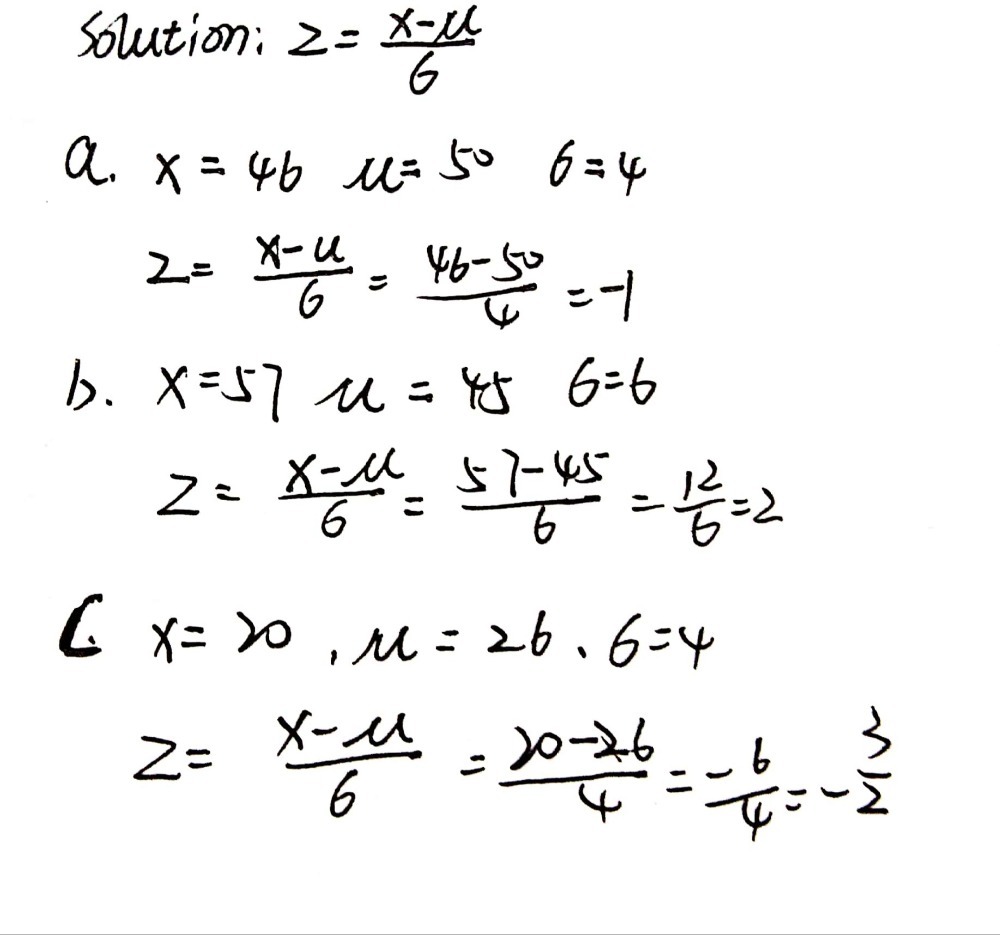 Solution: z = (x-μ)/σ
a. x = 46 μ = 50 σ = 4
z = (x-μ)/σ = (46-50)/4 = -1
b. x = 57 μ = 45 σ = 6
z = (x-μ)/σ = (57-45)/6 = 12/6 = 2
C. x = 20, μ = 26, σ = 4
z = (x-μ)/σ = (20-26)/4 = -6/4 = -3/2